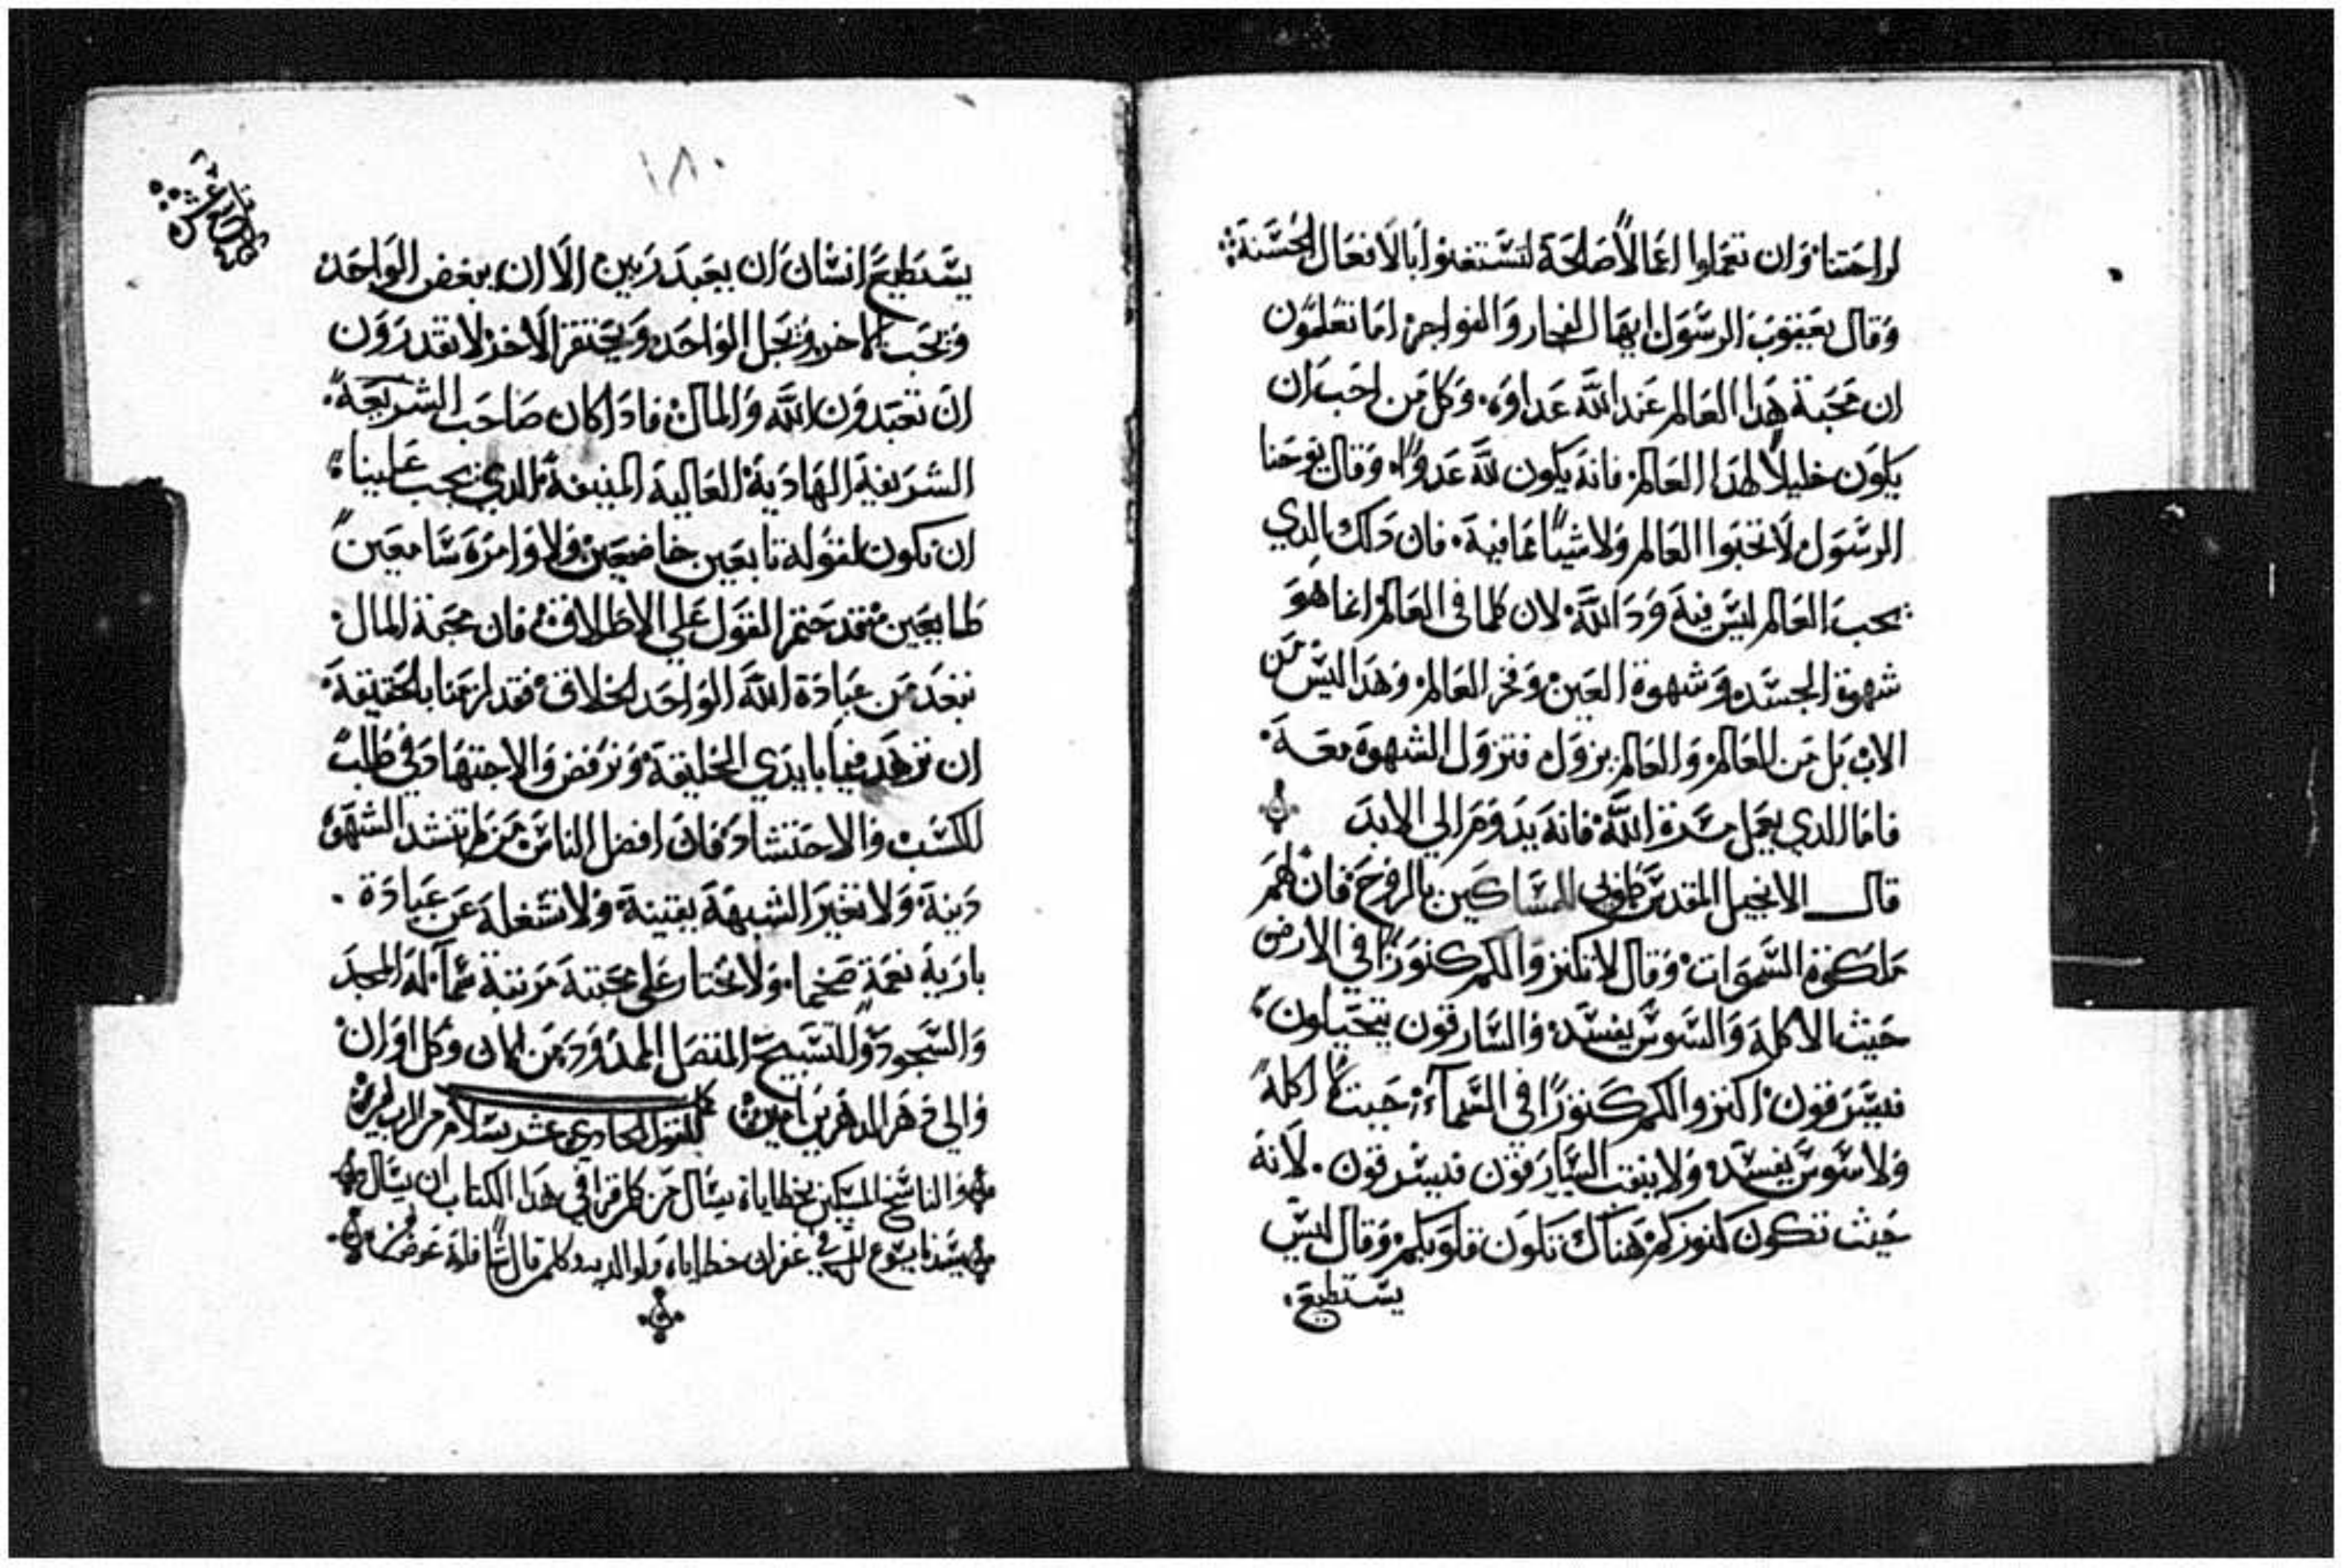 لراحتنا وان تعملوا اعمالاً صالحة لتستغنوا بالافعال الحسنة
وقال يعقوب الرسول ايها الفجار والفواجر اما تعلمون
ان محبة هدا العالم عند الله عداوه. وكل من احب ان
يكون خليلاً لهدا العالم فانه يكون لله عدواً. وقال يوحنا
الرسول لا تحبوا العالم ولا شياً مما فيه. فان دلك الدي
يحب العالم ليس فيه ود الله لان كلما في العالم انما هو
شهوة الجسد وشهوة العين وفخر العالم وهدا ليس من
الاب بل من العالم والعالم يزول فتزول الشهوة معه.
فاما الدي يعمل مسرة الله فانه يدوم الي الابد
قال الانجيل المقدس طوبي للمساكين بالروح فان لهم
ملكوة السموات وقال لا تكنزوا لكم كنوزاً في الارض
حيث الاكله والسوس يفسد والسارقون يتحيلون
فيسرقون اكنزوا لكم كنوزاً في السمآء حيث لا اكله
ولا سوس يفسد ولا ينقب السارقون فيسرقون. لانه
حيث تكون كنوزكم هناك تكون قلوبكم وقال ليس
يستطيع.
١٨٠
يستطيع انسان ان يعبد ربين الا ان يبغض الواحد
ويحب الاخر ويجل الواحد ويحتقر الاخر لا تقدرون
ان تعبدون الله والمال فادا كان صاحب الشريعة
الشريفة الهادية العالية المنيفة الدي يجب علينا
ان نكون لقوله تابعين خاضعين ولاوامره سامعين
طايعين فقد حتم القول علي الاطلاق فان محبة المال
تبعد من عبادة الله الواحد الخلاق فقد لزمنا بالحقيقة
ان نزهد فيما بايدي الخليقة ونرفض والاجتهاد في طلب
للكسب والاحتشاد فان افضل الناس من لم تفسد الشهوة
دينه ولا تغير الشبهة يقينه ولا تشغله عن عبادة
باريه نعمة ضخما ولا يختار علي محبته مرتبة عما له المجد
والسجود والتسبيح المتصل الممدود من الان وكل اوان
والي دهر الداهرين امين كمل القول الحادي عشر بسلام من الرب امين
والناسخ المسكين بخطاياه يسال من كل من قرا في هدا الكتاب ان يسال
سيدنا يسوع المسيح في غفران خطاياه ولوالديه وكلمن قال شياً فله عوضه